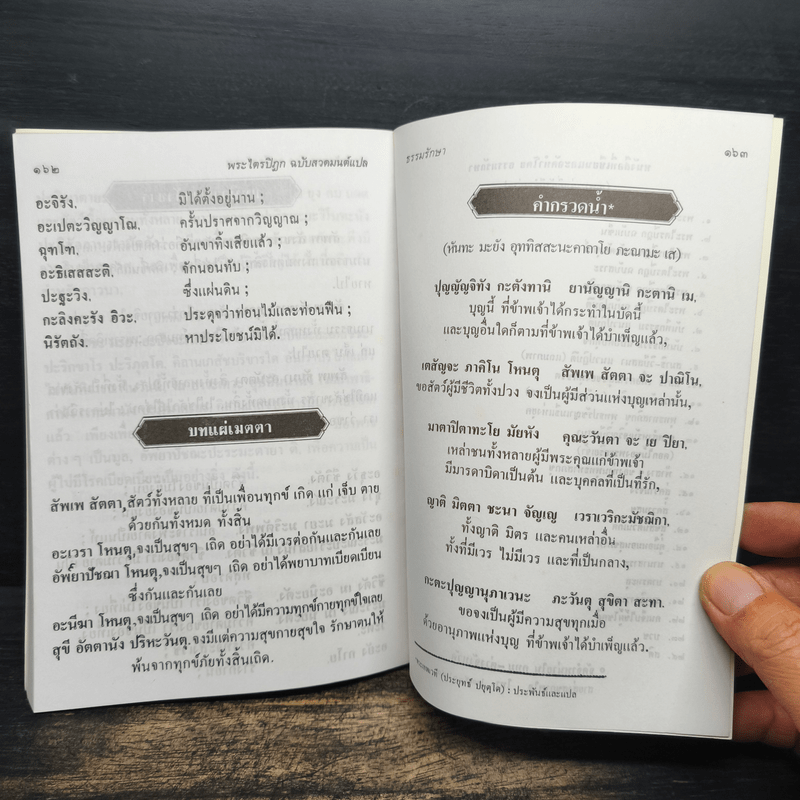 ๑๖๒ พระไตรปิฎก ฉบับสวดมนต์แปล
อะจิรัง. มิได้ตั้งอยู่นาน ;
อะเปตะวิญญาโณ. ครั้นปราศจากวิญญาณ ;
ฉุฑโฑ. อันเขาทิ้งเสียแล้ว ;
อะธิเสสสะติ. จักนอนทับ ;
ปะฐะวิง. ซึ่งแผ่นดิน ;
กะลิงคะรัง อิวะ. ประดุจว่าท่อนไม้และท่อนฟืน ;
นิรัตถัง. หาประโยชน์มิได้.
บทแผ่เมตตา
สัพเพ สัตตา,สัตว์ทั้งหลาย ที่เป็นเพื่อนทุกข์ เกิด แก่ เจ็บ ตาย
ด้วยกันทั้งหมด ทั้งสิ้น
อะเวรา โหนตุ,จงเป็นสุขๆ เถิด อย่าได้มีเวรต่อกันและกันเลย
อัพ๎ยาปัชฌา โหนตุ,จงเป็นสุขๆ เถิด อย่าได้พยาบาทเบียดเบียน
ซึ่งกันและกันเลย
อะนีฆา โหนตุ,จงเป็นสุขๆ เถิด อย่าได้มีความทุกข์กายทุกข์ใจเลย
สุขี อัตตานัง ปริหะวันตุ.จงมีแต่ความสุขกายสุขใจ รักษาตนให้
พ้นจากทุกข์ภัยทั้งสิ้นเถิด.
ธรรมรักษา ๑๖๓
คำกรวดน้ำ*
(หันทะ มะยัง อุททิสสะนะคาถาโย ภะณามะ เส)
ปุญญัญจิทัง กะตังทานิ ยานัญญานิ กะตานิ เม.
บุญนี้ ที่ข้าพเจ้าได้กระทำในบัดนี้
และบุญอื่นใดก็ตามที่ข้าพเจ้าได้บำเพ็ญแล้ว,
เตสัญจะ ภาคิโน โหนตุ สัพเพ สัตตา จะ ปาณิโน.
ขอสัตว์ผู้มีชีวิตทั้งปวง จงเป็นผู้มีส่วนแห่งบุญเหล่านั้น,
มาตาปิตาทะโย มัยหัง คุณะวันตา จะ เย ปิยา.
เหล่าชนทั้งหลายผู้มีพระคุณแก่ข้าพเจ้า
มีมารดาบิดาเป็นต้น และบุคคลที่เป็นที่รัก,
ญาติ มิตตา ชะนา จัญเญ เวราเวริกะมัชฌิกา.
ทั้งญาติ มิตร และคนเหล่าอื่น
ทั้งที่มีเวร ไม่มีเวร และที่เป็นกลาง,
กะตะปุญญานุภาเวนะ ภะวันตุ สุขิตา สะทา.
ขอจงเป็นผู้มีความสุขทุกเมื่อ
ด้วยอานุภาพแห่งบุญ ที่ข้าพเจ้าได้บำเพ็ญแล้ว.
(ประยุทธ์ ปยุตฺโต) : ประพันธ์และแปล